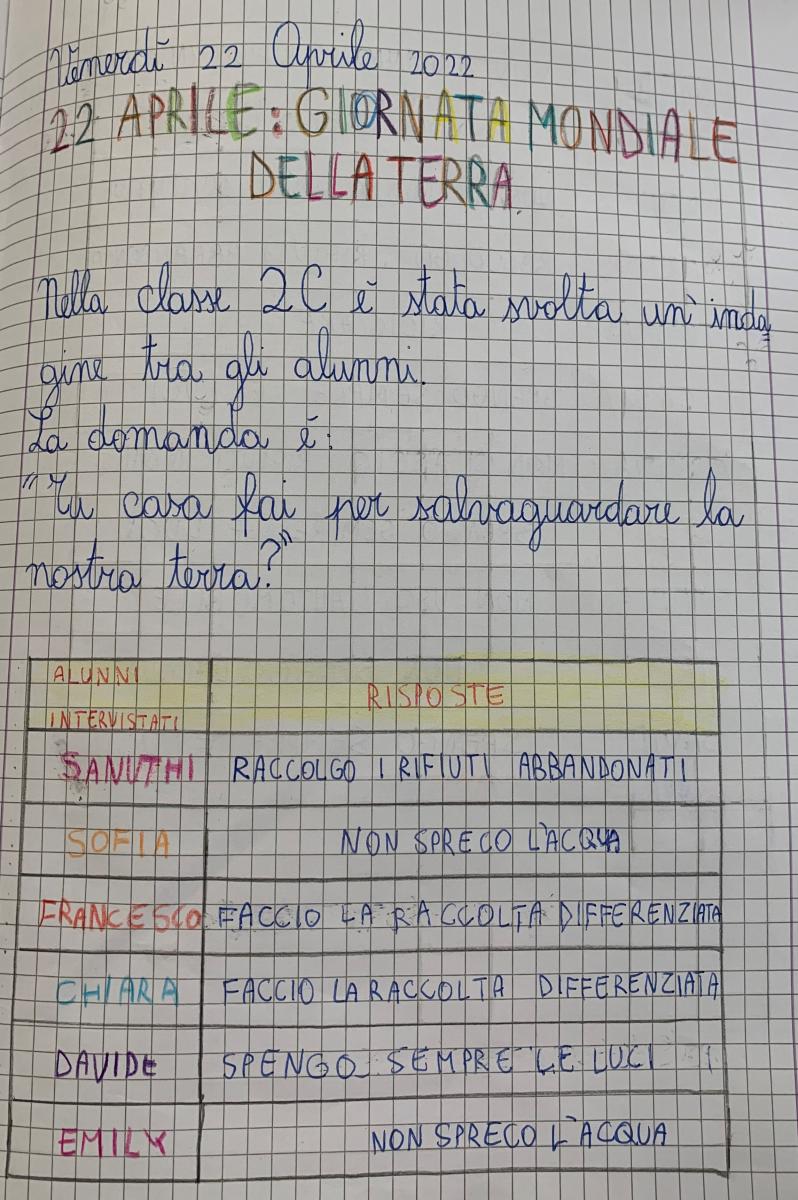 Venerdì 22 Aprile 2022
22 APRILE: GIORNATA MONDIALE
DELLA TERRA.
Nella classe 2C è stata svolta un'inda
gine tra gli alunni.
La domanda è:
"Tu cosa fai per salvaguardare la
nostra terra?"
ALUNNI INTERVISTATI RISPOSTE
SANUTHI RACCOLGO I RIFIUTI ABBANDONATI
SOFIA NON SPRECO L'ACQUA
FRANCESCO FACCIO LA RACCOLTA DIFFERENZIATA
CHIARA FACCIO LA RACCOLTA DIFFERENZIATA
DAVIDE SPENGO SEMPRE LE LUCI
EMILY NON SPRECO L'ACQUA